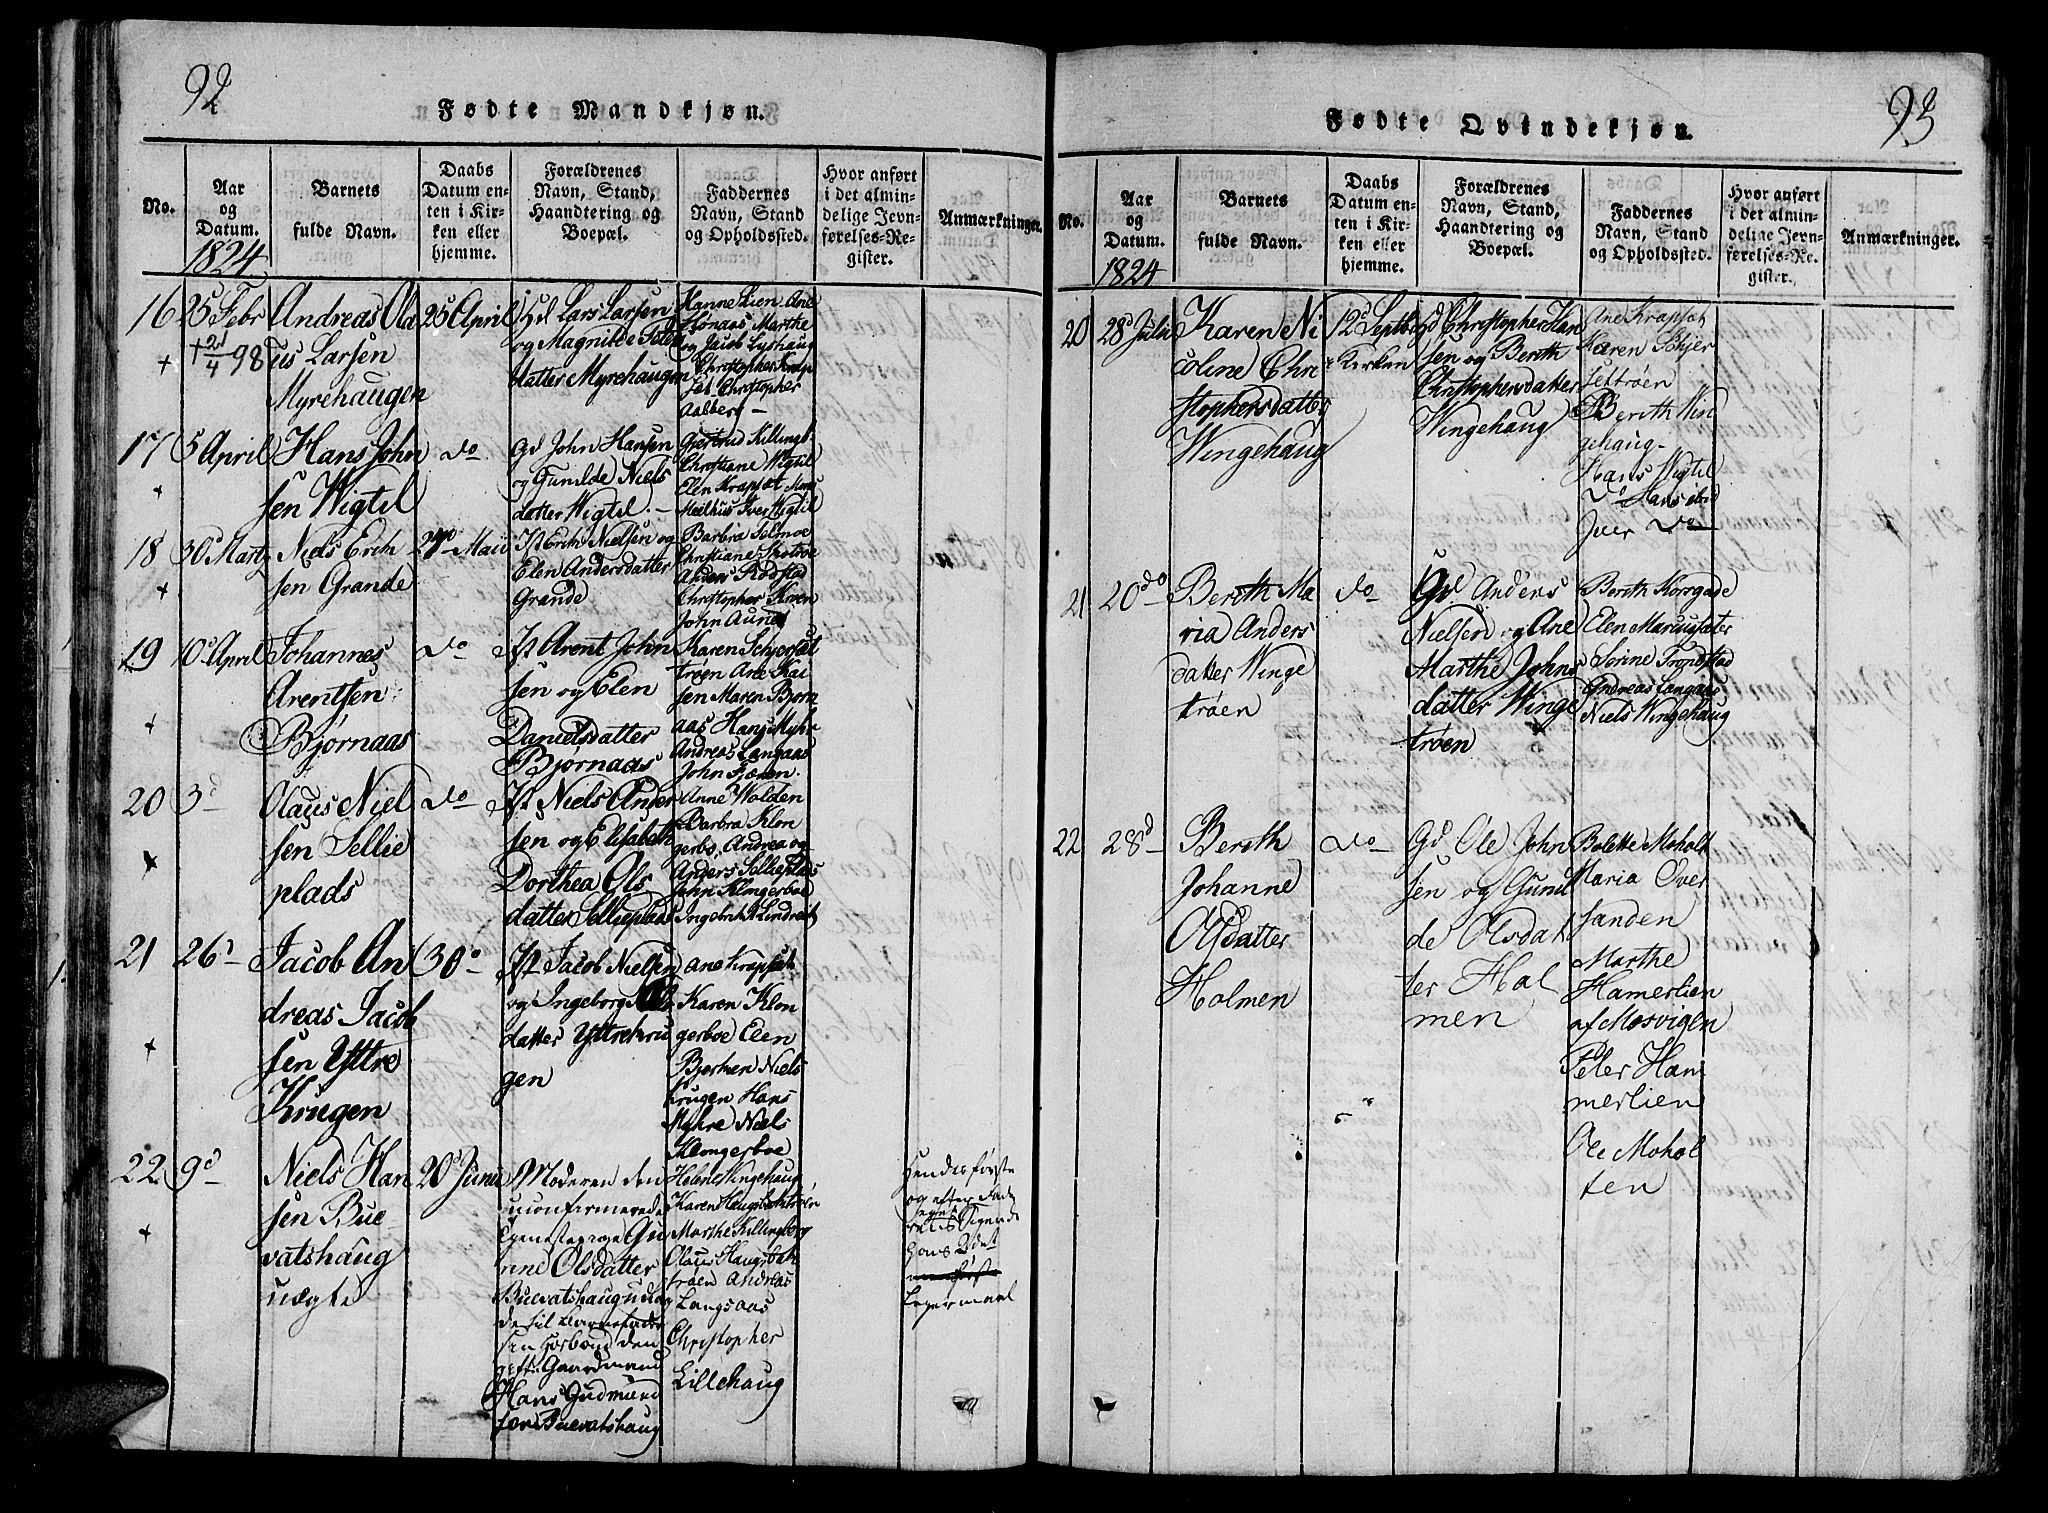 92
Fødte Mandkjøn.
No.
Aar
og
Datum.
1824
Barnets
fulde Navn.
Daabs
Datum en-
ten i Kir-
ken eller
hjemme.
Forældrenes
Navn, Stand,
Haandtering og
Boepæl.
Faddernes
Navn, Stand
og Opholdssted.
Hvor anført
i det almin-
delige Jevn-
førelses-Re-
gister.
Anmærkninger.
16
+
25 Febr
† 21/4 98
Andreas Ola
us Larsen
Myrehaugen
25 April
Hd Lars Larsen
og Magnilde Peders
datter Myrehaugen
Hanne Lien Ane
Marthe
og Jacob Lyshaug
Christopher Krap
set Christopher
Aalberg
17
+
5 April
Hans John
sen Wigtil
do
Gd John Hansen
og Gunilde Niels
datter Wigtil
Gjertrud Killingb
Christiane Wigtil
Elen Krapsæt Mons
Melhus Iver Wigtil
18
+
30 Martz
Niels Erich
sen Grande
Maii
It Erich Nielsen og
Elen Andersdatter
Grande
Barbra Selmoe
Christiane
Anders Rodstad
Christopher Kroen
John Aune
19
+
10 April
Johannes
Arentsen
Bjørnaas
do
It Arent John
sen og Elen
Danielsdatter
Bjørnaas
Karen Schjersæt
trøen Ane Kai
sen Maren Bjørn
aas Hans Myhr
Andreas Langaas
John Fjæren
20
+
3d
Olaus Niel
sen Sellie
plads
do
It Niels Ander
sen og Elisabeth
Dorthea Ols
datter Sellieplads
Anne Wolden
Barbra Klon
gerbo, Andrea og
Anders Sellieplads
John Klingerboe
Ingebrigt Lindset
21
+
26d
Jacob An
dreas Jacob
sen Yttre
Krugen
30
It Jacob Nielsen
og Ingeborg
datter Yttrekru
gen
Ane Krapsæt
Karen Klon
gerboe Elen
Bjerken Niels
Krugen Hans
Myhre Niels
Klongerboe
22
+
9d
Niels Han
sen Bue-
vatshaug
uægte
20 Junii
Moderen den
uconfirmerede
Gu
nne Olsdatter
Buevatshaug udlag
de til Barnefader
sin Husbond den
gifte Gaardmand
Hans Gudmund
sen Buevatshaug
Helene Wingehaug
Karen Haugsbaktrøen
Marthe Killingberg
Olaus Haugsbak
trøen Andreas
Langsaas
Christopher
Lillehaug
Hendes første
og efter Fade
rens eget Sigende
hans 2det
Leiermaal
93
Fødte Qvindekjøn.
No.
Aar
og
Datum.
1824
Barnets
fulde Navn.
Daabs
Datum en-
ten i Kir-
ken eller
hjemme.
Forældrenes
Navn, Stand,
Haandtering og
Boepæl.
Faddernes
Navn, Stand
og Opholdssted.
Hvor anført
i det almin-
delige Jevn-
førelses-Re-
gister.
Anmærkninger.
20
28d Julii
Karen Ni
coline Chri
stophersdatter
Wingehaug
12 Septbr
i Kirken
Gd Christopher Han
sen og Berith
Christophersdatter
Wingehaug
Ane Krapsæt
Karen Schjer
settrøen
Berith Win
gehaug
Hans Wigtil
Iver do
21
20 do
Berith Ma
ria Anders
datter Winge
trøen
do
Gd Anders
Nielsen og Ane
Marthe Johns
datter Winge
trøen
Berith Korrgade
Elen Maraussæter
Sørine Tronstad
Andreas Langaas
Niels Wingehaug
22
28d
Berith
Johanne
Olsdatter
Holmen
do
Gd Ole John
sen og Gunil
de Olsdat
ter Hol
men
Bolette Moholt
Maria Over
sanden
Marthe
Hamerlien
af Mosvigen
Peter Ham
merlien
Ole Mohol
ten